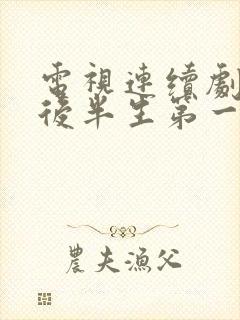 電視連續劇
後半生第一
農夫漁父